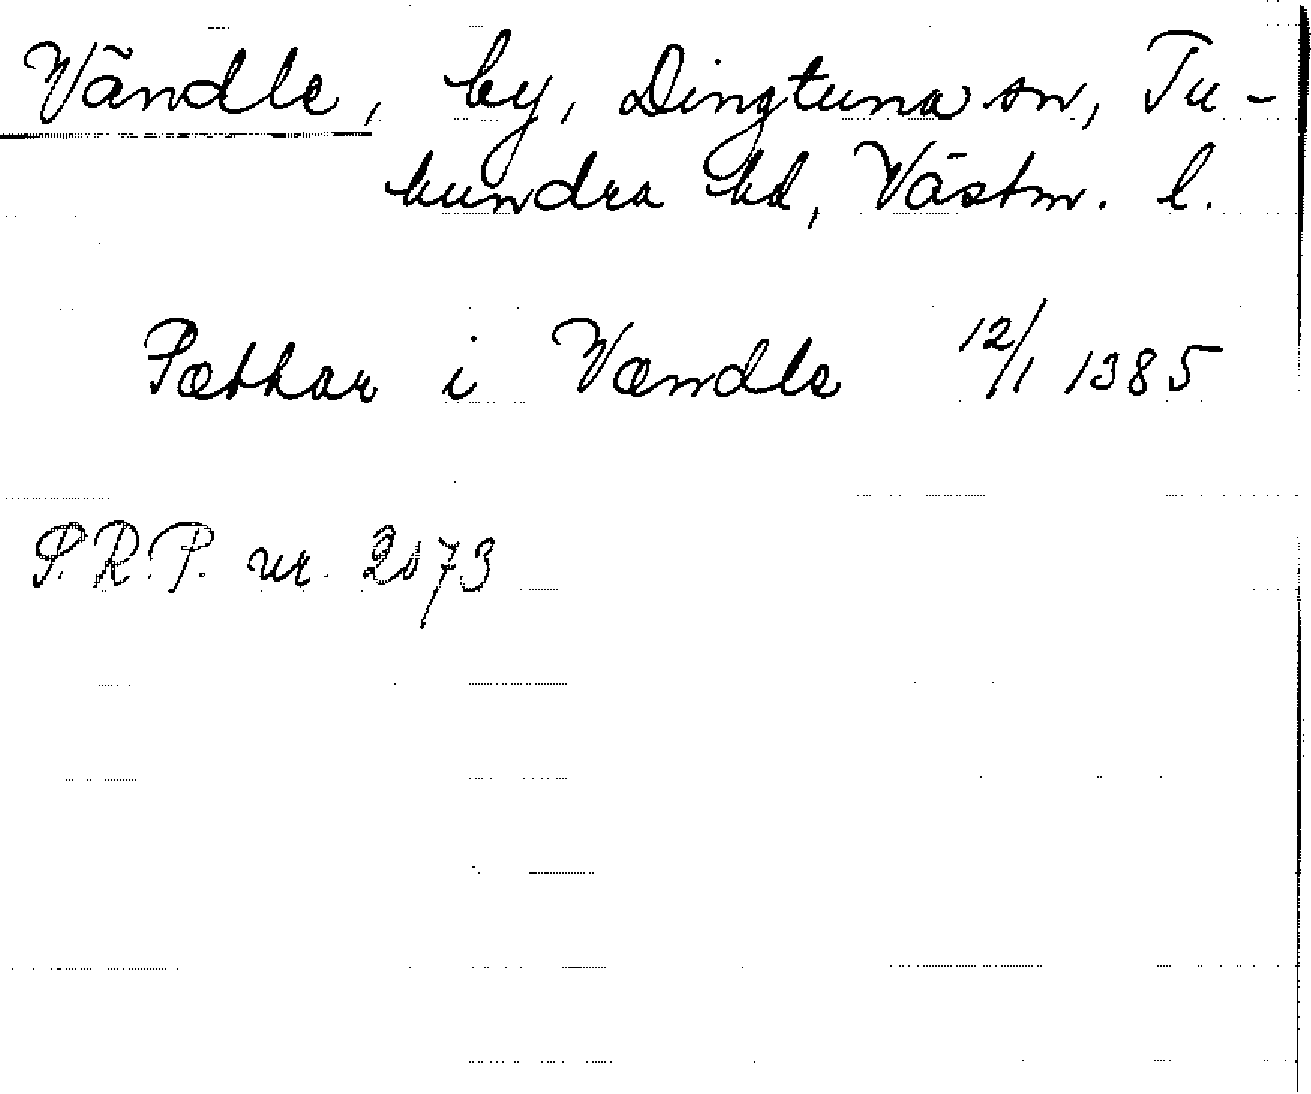 Vändle, by, Dingtuna sn, Tu-
hundra hd, Västm. l.
Pæthar i Vændle 12/1 1385
S.R.P. nr. 2073